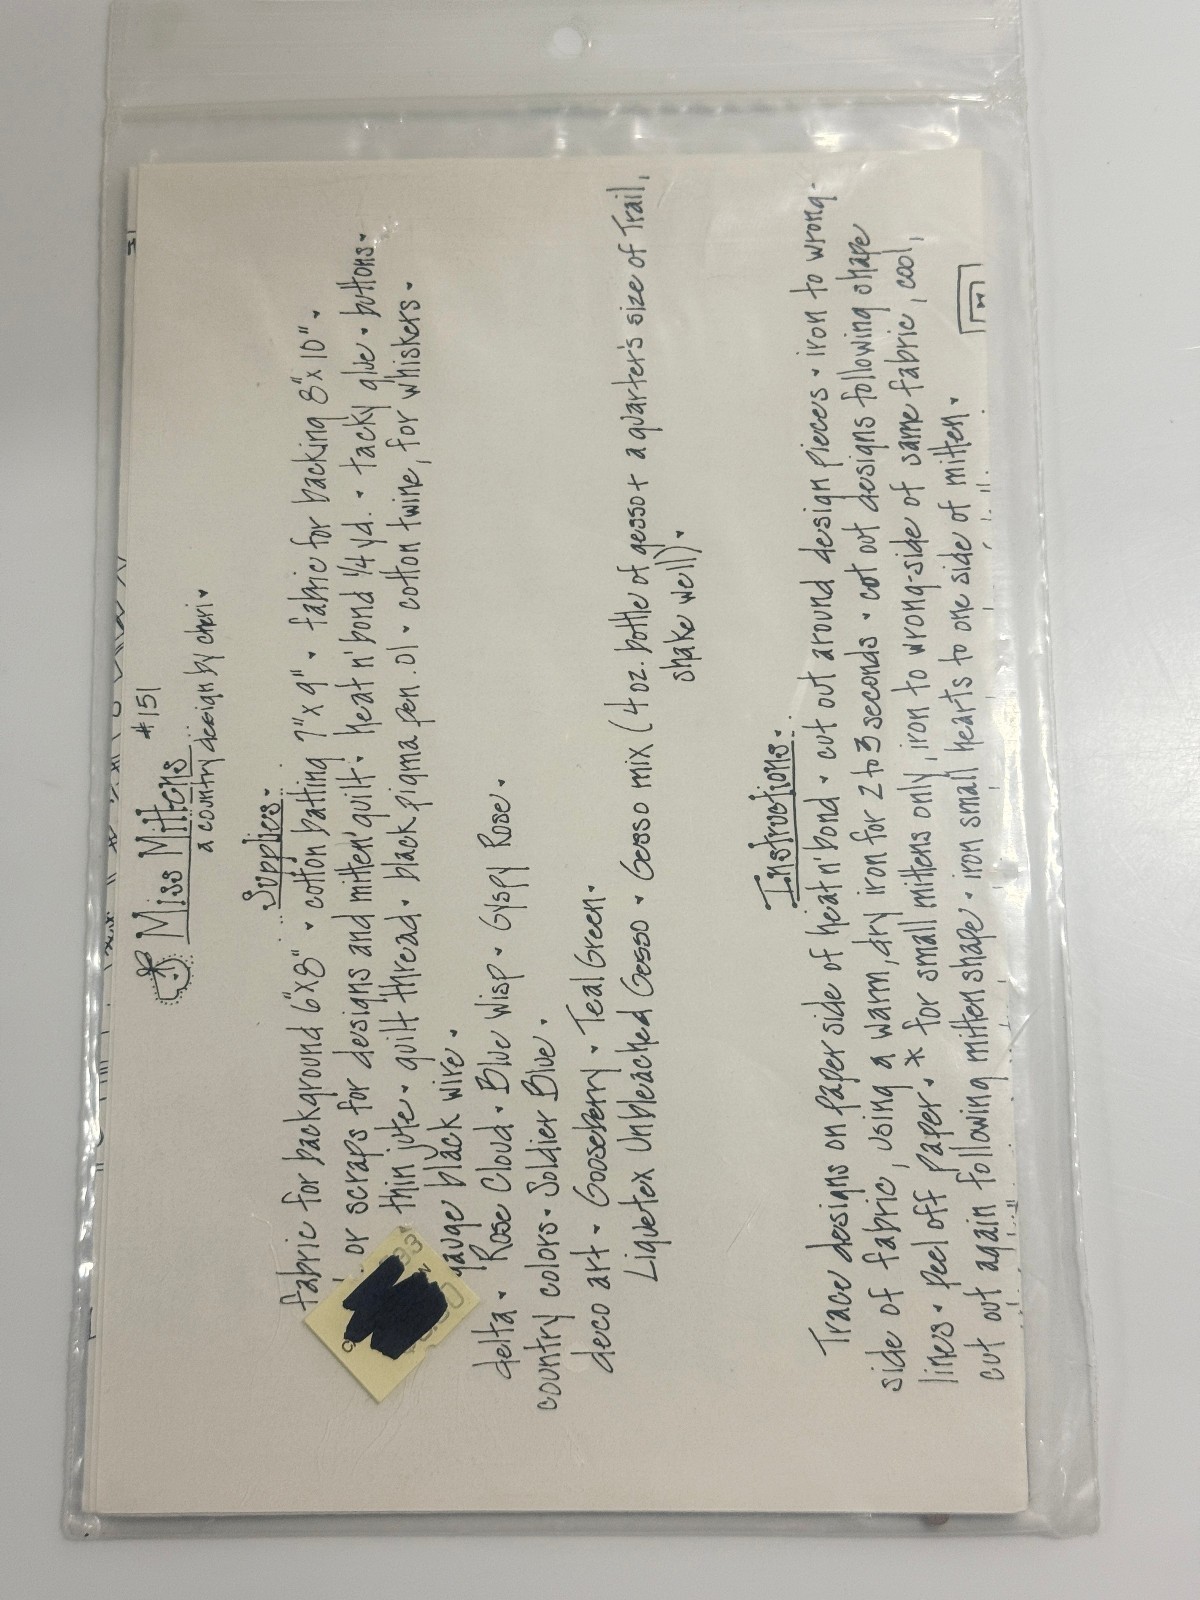 Miss Mittens #151
a country design by cheri.
Supplies.
fabric for background 6"x8" . cotton batting 7"x9" . fabric for backing 8"x10" .
or scraps for designs and mitten quilt . heat n' bond 1/4 yd. . tacky glue . buttons .
thin jute . quilt thread . black pigma pen .01 . cotton twine, for whiskers .
gauge black wire .
delta . Rose Cloud . Blue Wisp . Gyspy Rose .
country colors . Soldier Blue .
deco art . Gooseberry . Teal Green .
Liquetex Unbleached Gesso . Gesso mix (4 oz. bottle of gesso + a quarter's size of Trail,
shake well) .
Instructions .
Trace designs on paper side of heat n' bond . cut out around design pieces . iron to wrong-
side of fabric, using a warm, dry iron for 2 to 3 seconds . cut out designs following shape
lines . peel off paper . * for small mittens only, iron to wrong-side of same fabric, cool,
cut out again following mitten shape . iron small hearts to one side of mitten .